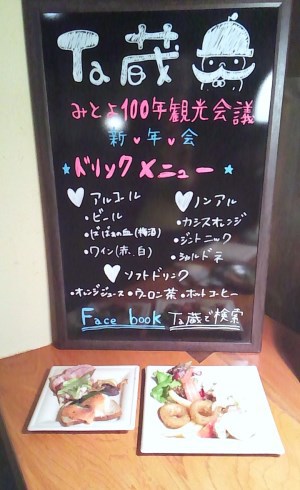 Ta蔵
みとよ100年観光会議
新♥年♥会
★ドリンクメニュー★
♡アルコール
・ビール
・ばぁばぁの血(梅酒)
・ワイン(赤.白)
♡ノンアル
・カシスオレンジ
・ジントニック
・シャルドネ
♡ソフトドリンク
・オレンジジュース・ウーロン茶・ホットコーヒー
Face book Ta蔵で検索